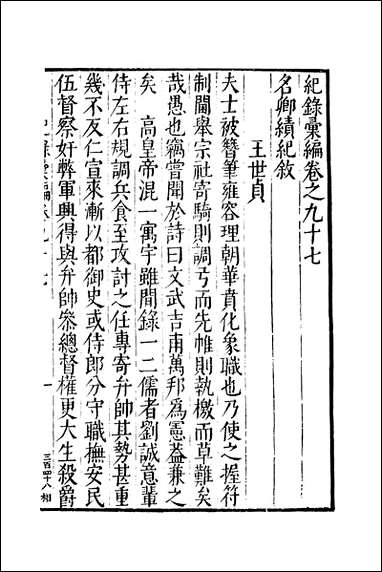 紀錄彙編卷之九十七
名卿績紀敘
王世貞
夫士被簪筆雍容理朝華賁化象職也乃使之握符
制閫舉宗社寄騎則調弓而先帷則執檄而草難矣
哉愚也竊嘗聞於詩曰文武吉甫萬邦爲憲葢兼之
矣 高皇帝混一寓宇雖閒錄一二儒者劉誠意輩
侍左右規調兵食至攻討之任專寄弁帥其勢甚重
幾不反仁宣來漸以都御史或侍郎分守職撫安民
伍督察奸弊軍興得與弁帥叅總督權更大生殺爵
紀錄彙編卷九十七
一
三百四十八相